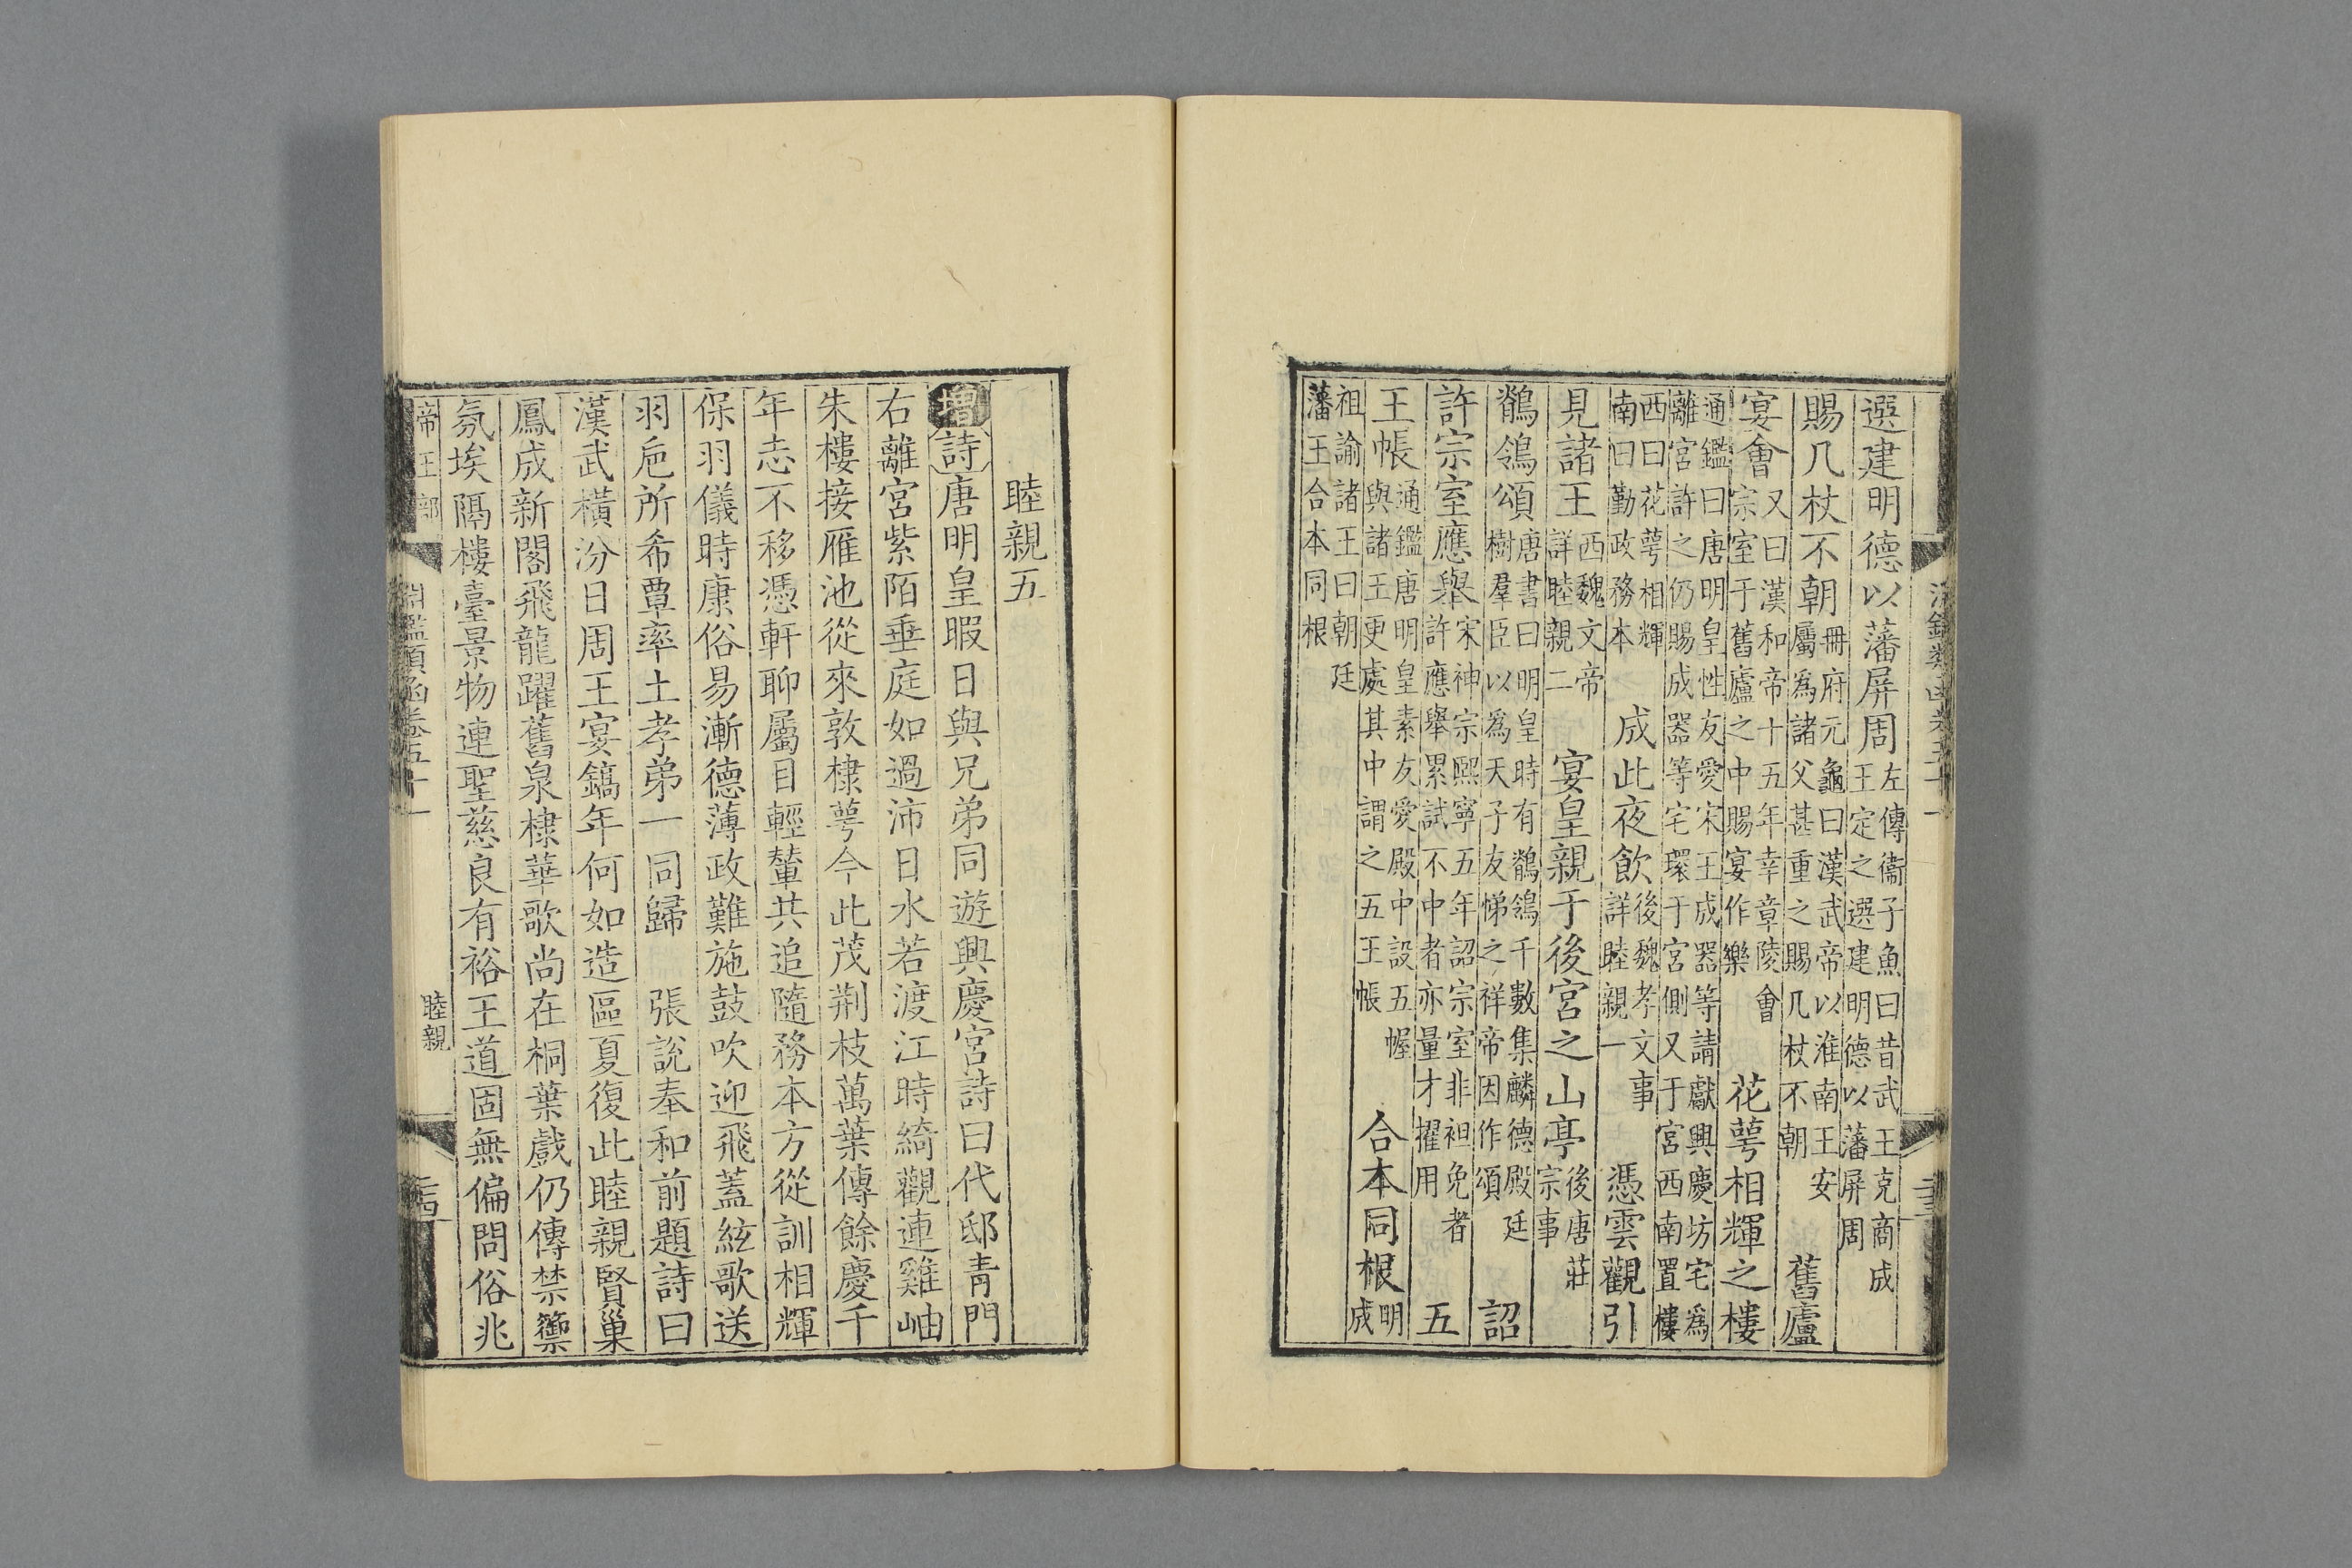 選建明德以藩屏周左傳衞子魚曰昔武王克商成王定之選建明德以藩屏周
賜几杖不朝冊府元龜曰漢武帝以淮南王安屬爲諸父甚重之賜几杖不朝　舊廬
宴會又曰漢和帝十五年幸章陵會宗室于舊廬之中賜宴作樂　花萼相輝之樓
通鑑曰唐明皇性友愛宋王成器等請獻興慶坊宅爲離宮許之仍賜成器等宅環于宮側又于宮西南置樓
西曰花萼相輝南曰勤政務本　成此夜飲後魏孝文事詳睦親一　憑雲觀引
見諸王西魏文帝詳睦親二　宴皇親于後宮之山亭後唐莊宗事
鶺鴒頌唐書曰明皇時有鶺鴒千數集麟德殿廷樹羣臣以爲天子友悌之祥帝因作頌　詔
許宗室應舉宋神宗熙寧五年詔宗室非袒免者許應舉累試不中者亦量才擢用　五
王帳通鑑唐明皇素友愛殿中設五幄與諸王更處其中謂之五王帳　合本同根明成
祖諭諸王曰朝廷藩王合本同根
睦親五
增詩唐明皇暇日與兄弟同遊興慶宮詩曰代邸青門
右離宮紫陌垂庭如過沛日水若渡江時綺觀連雞岫
朱樓接雁池從來敦棣萼今此茂荆枝萬葉傳餘慶千
年志不移憑軒聊屬目輕輦共追隨務本方從訓相輝
保羽儀時康俗易漸德薄政難施鼓吹迎飛蓋絃歌送
羽巵所希覃率土孝弟一同歸　張說奉和前題詩曰
漢武橫汾日周王宴鎬年何如造區夏復此睦親賢巢
鳳成新閣飛龍躍舊泉棣華歌尚在桐葉戲仍傳禁籞
氛埃隔樓臺景物連聖慈良有裕王道固無偏問俗兆
帝王部　淵鑑類函卷五十一　睦親　二十四